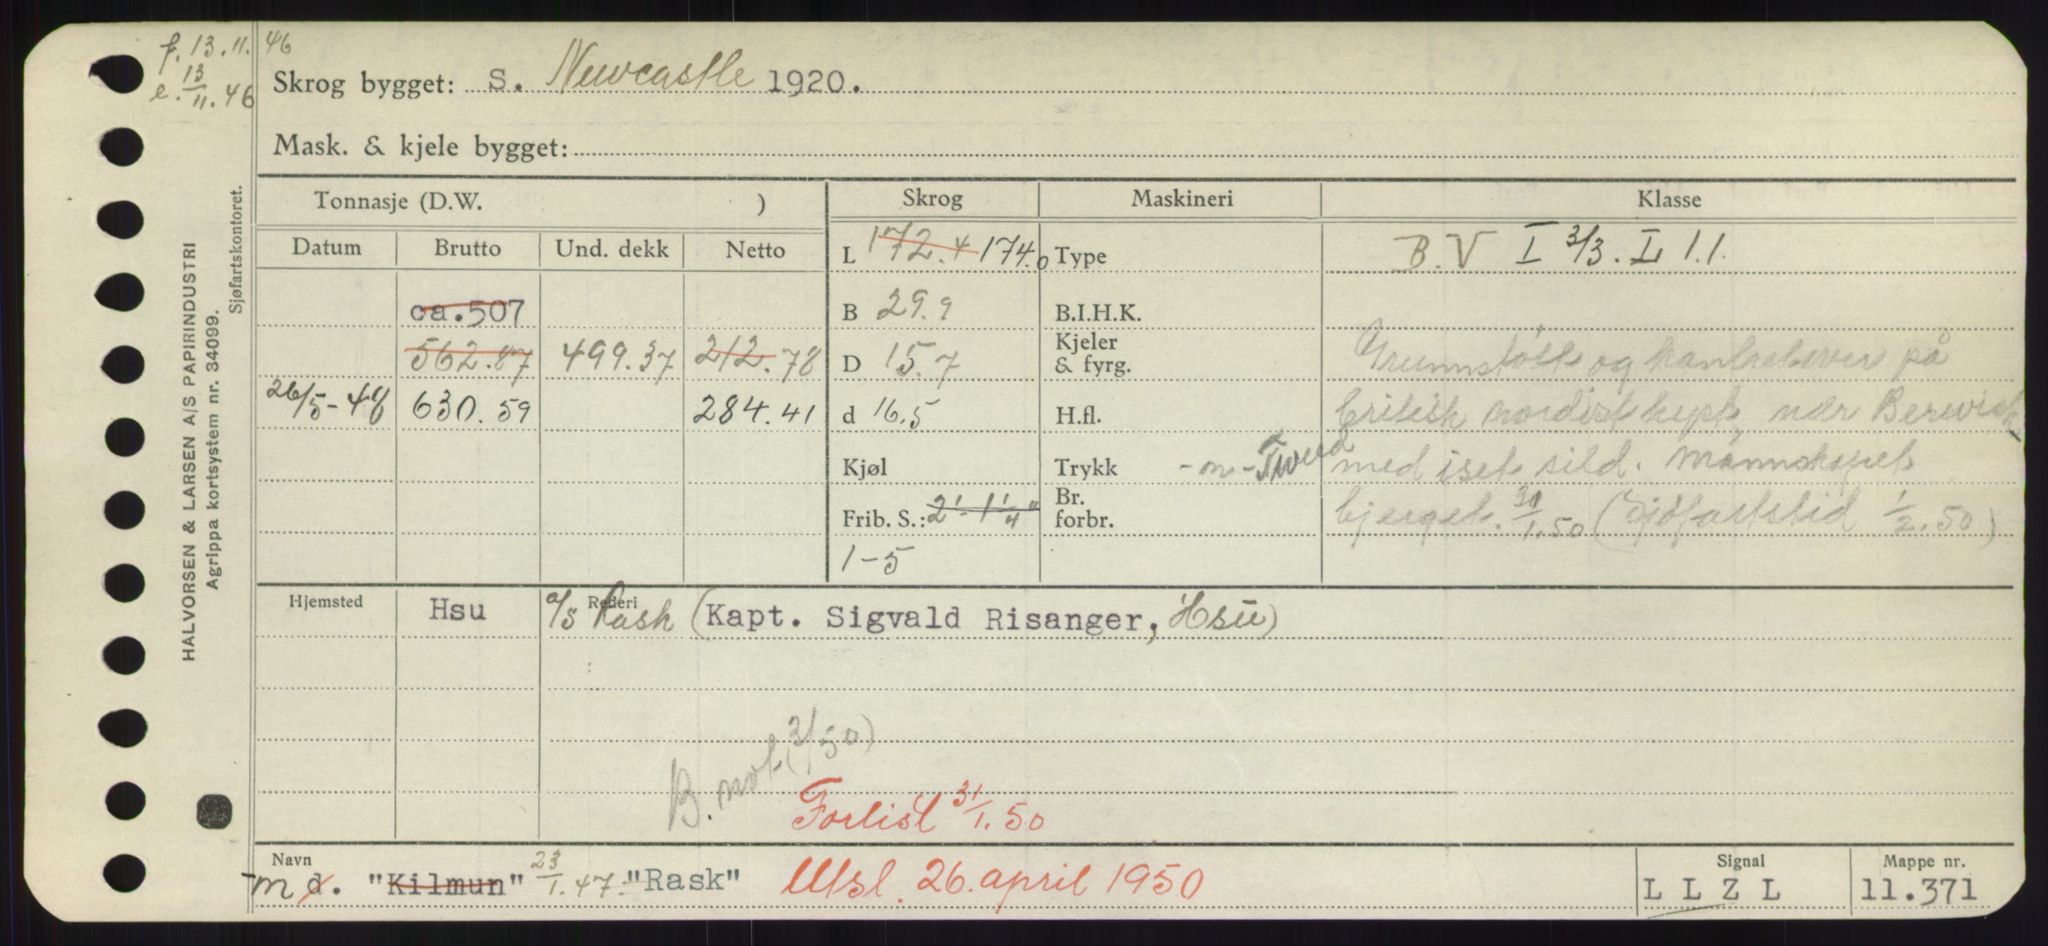 f. 13.11.46
e. 13/11.46
Skrog bygget: S. Newcastle 1920.
Mask. & kjele bygget:
Tonnasje (D.W. )
Skrog
Maskineri
Klasse
Datum
Brutto
Und. dekk
Netto
L 172.4 174.0
Type
B.V I 3/3. L 1.1.
ca. 507
B 29.9
B.I.H.K.
562.87 499.37 212.78
D 15.7
Kjeler & fyrg.
Grunnstøtt og kantret over på
26/5-48 630.59 284.41
d 16.5
H.fl.
britisk nordøstkyst, nær Berwick
Kjøl
Trykk
-on-Tweed med iset sild. Mannskapet
Frib. S.: 2'-1 1/4"
Br. forbr.
bjerget. 31/1.50 (Sjøfartstid 1/2.50)
1-5
Hjemsted
Hsu
Rederi
a/s Rask (Kapt. Sigvald Risanger, Hsu)
B. not (3/50)
Forlist 31/1.50
Navn
m d. "Kilmun" 23/1.47 "Rask" Utsl. 26. april 1950
Signal
L L Z L
Mappe nr.
11.371
HALVORSEN & LARSEN A/S PAPIRINDUSTRI
Agrippa kortsystem nr. 34099.
Sjøfartskontoret.